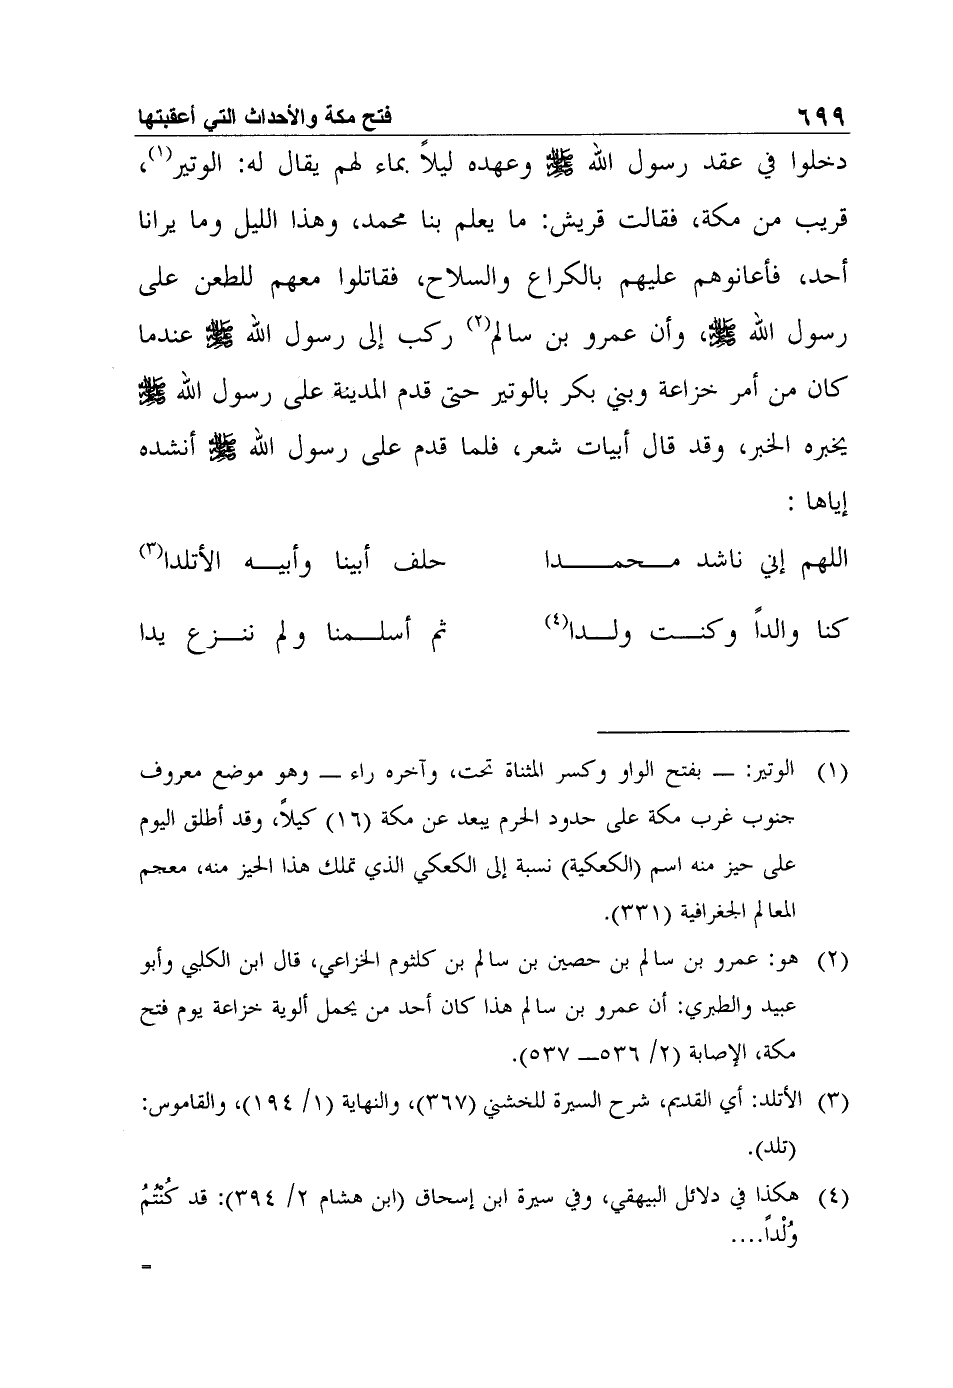 ٦٩٩ فتح مكة والأحداث التي أعقبتها
دخلوا في عقد رسول الله ﷺ وعهده ليلاً بماء لهم يقال له: الوتير(١)،
قريب من مكة، فقالت قريش: ما يعلم بنا محمد، وهذا الليل وما يرانا
أحد، فأعانوهم عليهم بالكراع والسلاح، فقاتلوا معهم للطعن على
رسول الله ﷺ، وأن عمرو بن سالم(٢) ركب إلى رسول الله ﷺ عندما
كان من أمر خزاعة وبني بكر بالوتير حتى قدم المدينة على رسول الله ﷺ
يخبره الخبر، وقد قال أبيات شعر، فلما قدم على رسول الله ﷺ أنشده
إياها :
اللهم إني ناشد مـحمـــدا حلف أبينا وأبيـــه الأتلدا(٣)
كنا والداً وكنـــت ولـــدا(٤) ثم أسلـــمنا ولم ننـــزع يدا
(١) الوتير: ــ بفتح الواو وكسر المثناة تحت، وآخره راء ــ وهو موضع معروف
جنوب غرب مكة على حدود الحرم يبعد عن مكة (١٦) كيلاً، وقد أطلق اليوم
على حيز منه اسم (الكعكية) نسبة إلى الكعكي الذي تملك هذا الحيز منه، معجم
المعالم الجغرافية (٣٣١).
(٢) هو: عمرو بن سالم بن حصين بن سالم بن كلثوم الخزاعي، قال ابن الكلبي وأبو
عبيد والطبري: أن عمرو بن سالم هذا كان أحد من يحمل ألوية خزاعة يوم فتح
مكة، الإصابة (٢/ ٥٣٦ــ ٥٣٧).
(٣) الأتلد: أي القديم، شرح السيرة للخشني (٣٦٧)، والنهاية (١/ ١٩٤)، والقاموس:
(تلد).
(٤) هكذا في دلائل البيهقي، وفي سيرة ابن إسحاق (ابن هشام ٢/ ٣٩٤): قد كُنْتُمُ
وُلْداً....
=